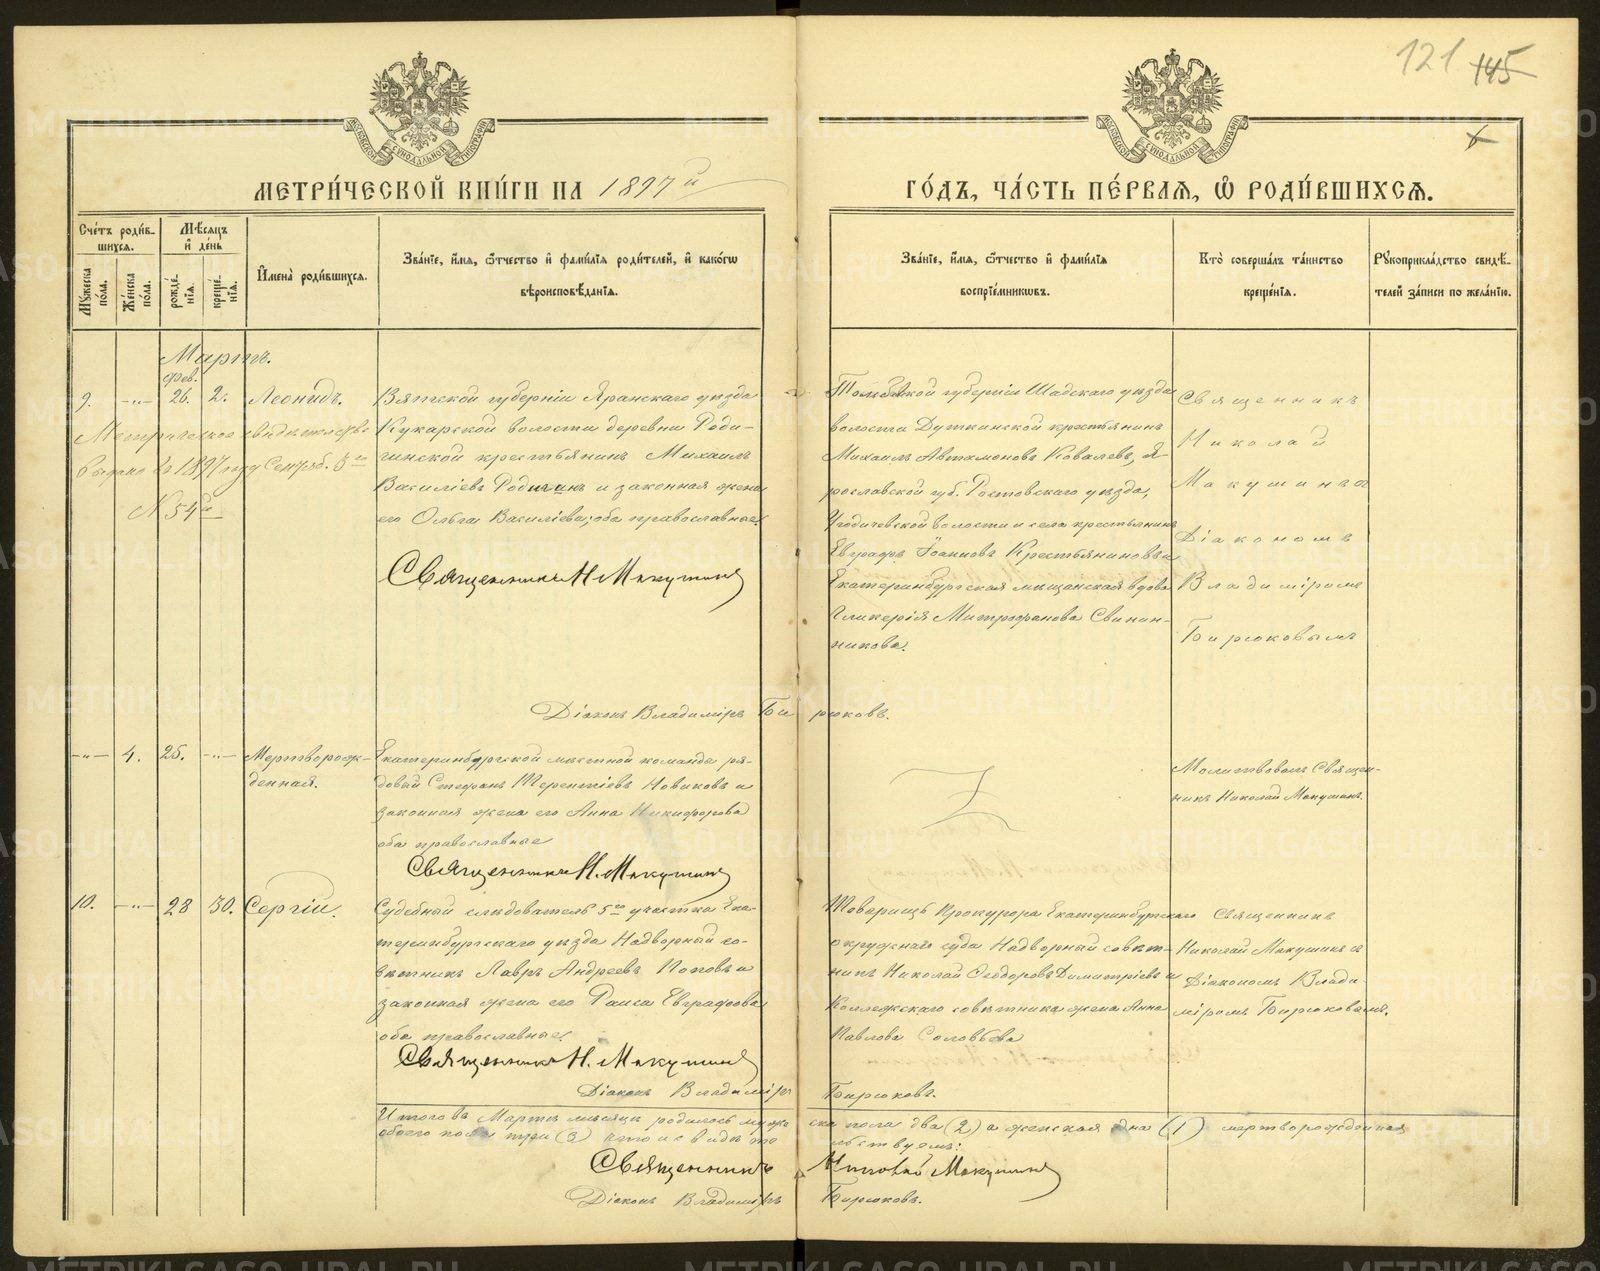 121 145
МЕТРИ́ЧЕСКОЙ КНИ́ГИ НА 1897й
ГО́ДЪ, ЧА́СТЬ ПЕ́РВАЯ, Ѿ РОДИ́ВШИХСЯ.
Сче́тъ роди́в-
шихся.
Мѣсяцъ
и де́нь
Му́жеска
по́ла.
Же́нска
по́ла.
рожде́-
нія.
креще́-
нія.
Имена̀ роди́вшихся.
Зва́ніе, имя, отчество и фами́лія роди́телей, и како́гѡ
вѣроисповѣ́данія.
Зва́ніе, имя, отчество и фами́лія
воспріе́мниковъ.
Кто̀ соверша́лъ та́инство
креще́нія.
Рукоприкла́дство свидѣ́-
телей за́писи по жела́нію.
Мартъ.
Фев.
9. -"- 26. 2. Леонидъ.
Метрическое свидѣтельство
выдано въ 1897 году Сентяб. 5го
№ 54й
Вятской губерніи Яранскаго уѣзда
Кукарской волости деревни Роди-
гинской крестьянинъ Михаилъ
Василіевъ Родигинъ и законная жена
его Ольга Василіева; оба православные.
Священникъ Н. Макушинъ
Діаконъ Владиміръ Бирюковъ.
Тамбовской губерніи Шадскаго уѣзда
волости Дуткинской крестьянинъ
Михаилъ Автамоновъ Ковалевъ, Я-
рославской губ. Ростовскаго уѣзда,
Угодичевской волости и села крестьянинъ
Евграфъ Іоанновъ Крестьяниновъ и
Екатеринбургская мѣщанская вдова
Гликерія Митрофанова Свинин-
никова.
Священникъ
Николай
Макушинъ
Діакономъ
Владиміромъ
Бирюковымъ
-"- 4. 25. -"- Мертворож-
денная.
Екатеринбургской мѣстной команды ря-
довой Стефанъ Терентіевъ Новиковъ и
законная жена его Анна Никифорова
оба православные
Священникъ Н. Макушинъ
Молитвовалъ Священ-
никъ Николай Макушинъ.
10. -"- 28 30. Сергій.
Судебный слѣдователь 5го участка Ека-
теринбургскаго уѣзда Надворный со-
вѣтникъ Лавръ Андреевъ Поповъ и
законная жена его Раиса Евграфова
оба православные.
Священникъ Н. Макушинъ
Діаконъ Владиміръ Бирюковъ.
Товарищъ Прокурора Екатеринбургскаго
окружнаго суда Надворный совѣт-
никъ Николай Ѳеодоровъ Димитріевъ и
Коллежскаго совѣтника жена Анна
Павлова Соловьева
Священникъ
Николай Макушинъ съ
Діакономъ Влади-
міромъ Бирюковымъ.
Итого въ Мартѣ мѣсяцѣ родилось муже ска пола два (2) а женская одна (1) мертворожденная
обоего пола три (3) что и свидѣте льствуемъ:
Священникъ Николай Макушинъ
Діаконъ Владиміръ Бирюковъ.
METRIKI.GASO-URAL.RU